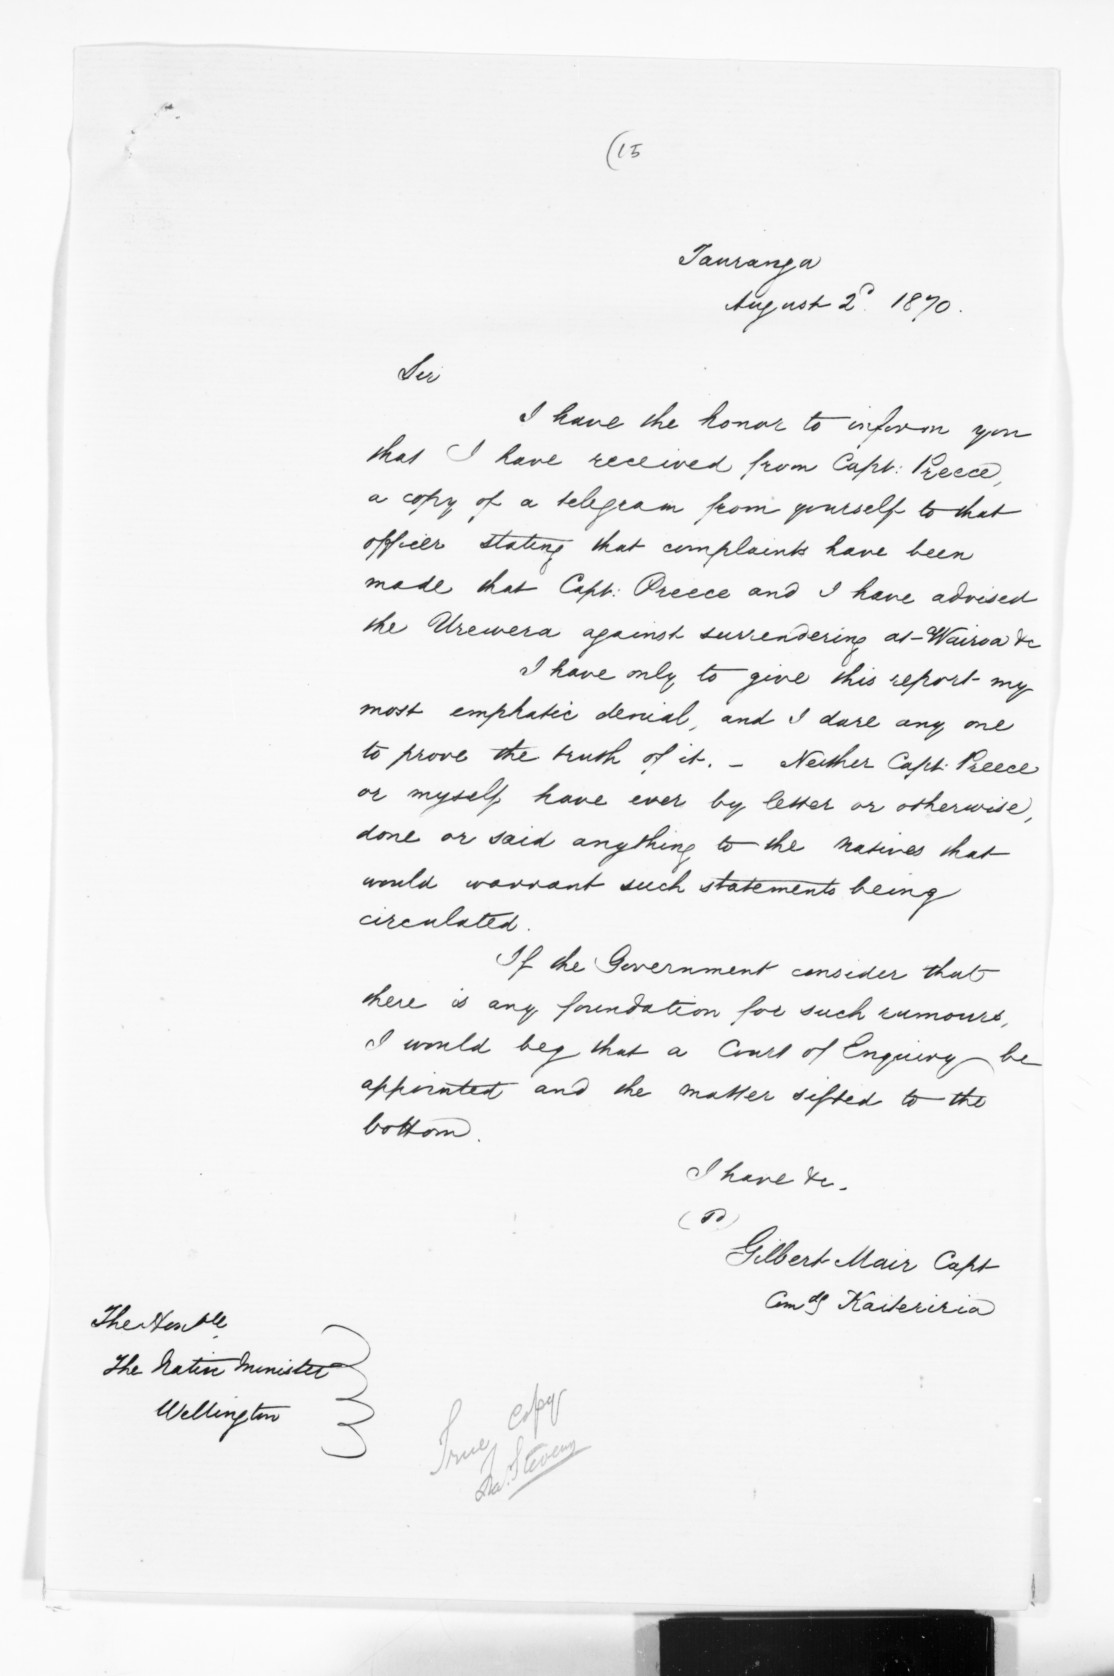 (15
Tauranga
August 2d. 1870.
Sir
I have the honor to inform you
that I have received from Capt: Preece,
a copy of a telegram from yourself to that
officer stating that complaints have been
made that Capt: Preece and I have advised
the Urewera against surrendering at Wairoa &c
I have only to give this report my
most emphatic denial, and I dare any one
to prove the truth of it. — Neither Capt: Preece
or myself have ever by letter or otherwise,
done or said anything to the natives that
would warrant such statements being
circulated.
If the Government consider that
there is any foundation for such rumours,
I would beg that a Court of Enquiry be
appointed and the matter sifted to the
bottom.
I have &c.
(sd)
Gilbert Mair Capt
Comdg Kaiteriria
The Honble
The Native Minister
Wellington
True copy
Stevens